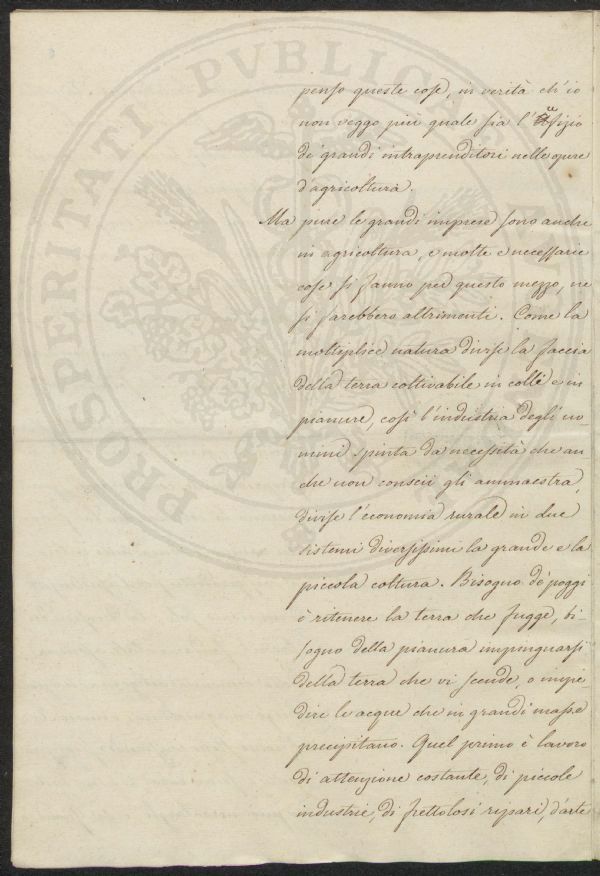 PROSPERITATI PVBLICAE
penso queste cose, in verità ch'io
non veggo più quale sia l'ufizio
di grandi intraprenditori nelle opere
d'agricoltura.
Ma pure le grandi imprese sono anche
in agricoltura, e molte e necessarie
cose si fanno per questo mezzo, ne
si farebbero altrimenti. Come la
moltiplice natura divise la faccia
della terra coltivabile in colli e in
pianure, così l'industria degli uo-
mini spinta da necessità che an
che non conscii gli ammaestra,
divise l'economia rurale in due
sistemi diversissimi la grande e la
piccola coltura. Bisogno de' poggi
è ritenere la terra che fugge, bi-
sogno della pianura impinguarsi
della terra che vi scende, o impe-
dire le acque che in grandi masse
precipitano. Quel primo è lavoro
di attenzione costante, di piccole
industrie, di frettolosi ripari, d'arte